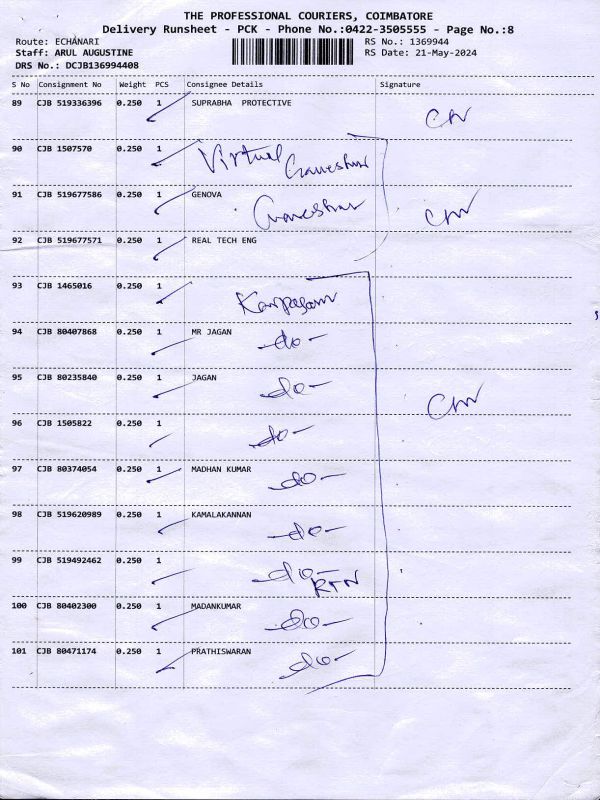 THE PROFESSIONAL COURIERS, COIMBATORE
Delivery Runsheet - PCK - Phone No.:0422-3505555 - Page No.:8
Route: ECHANARI RS No.: 1369944
Staff: ARUL AUGUSTINE RS Date: 21-May-2024
DRS No.: DCJB136994408
S No Consignment No Weight PCS Consignee Details Signature
89 CJB 519336396 0.250 1 SUPRABHA PROTECTIVE
90 CJB 1507570 0.250 1 Virtual Ganeshar
91 CJB 519677586 0.250 1 GENOVA Ganeshar
92 CJB 519677571 0.250 1 REAL TECH ENG
93 CJB 1465016 0.250 1 Karpagam
94 CJB 80407868 0.250 1 MR JAGAN -do-
95 CJB 80235840 0.250 1 JAGAN -do-
96 CJB 1505822 0.250 1 -do-
97 CJB 80374054 0.250 1 MADHAN KUMAR -do-
98 CJB 519620989 0.250 1 KAMALAKANNAN -do-
99 CJB 519492462 0.250 1 -do-
RTN
100 CJB 80402300 0.250 1 MADANKUMAR -do-
101 CJB 80471174 0.250 1 PRATHISWARAN -do-